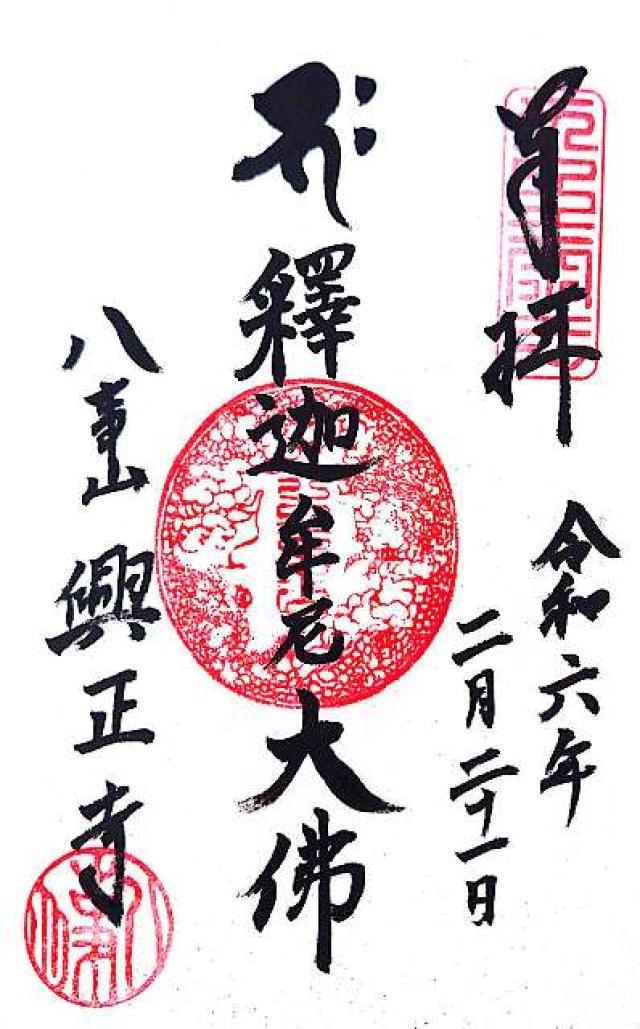 奉拝
令和六年
二月二十一日
釋迦牟尼大佛
八事山 興正寺